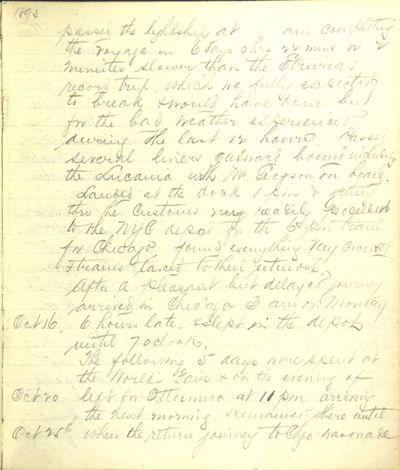 1893
passed the lightship at am completing
the voyage in 6 days 8 hrs 22 mins or 2
minutes slower than the Etrurias
record trip, which we fully expected
to break & would have done but
for the bad weather experienced
during the last 12 hours. Passed
several liners outward bound including
the Lucania with Mr on board.
Landed at the dock 1 pm & getting
thro the Customs very easily proceeded
to the NYC depot for the 6 pm train
for Chicago found everything very crowded
& trains taxed to their utmost
After a pleasant but delayed journey
arrived in Chicago 3 am on Monday
Oct 16. 6 hours late. Slept in the depot
until 7 oclock.
The following 5 days were spent at
the World's Fair & on the evening of
Oct 20 left for Ottumwa at 11 pm arriving
the next morning & remained there until
Oct 25th when the return journey to Chgo was made